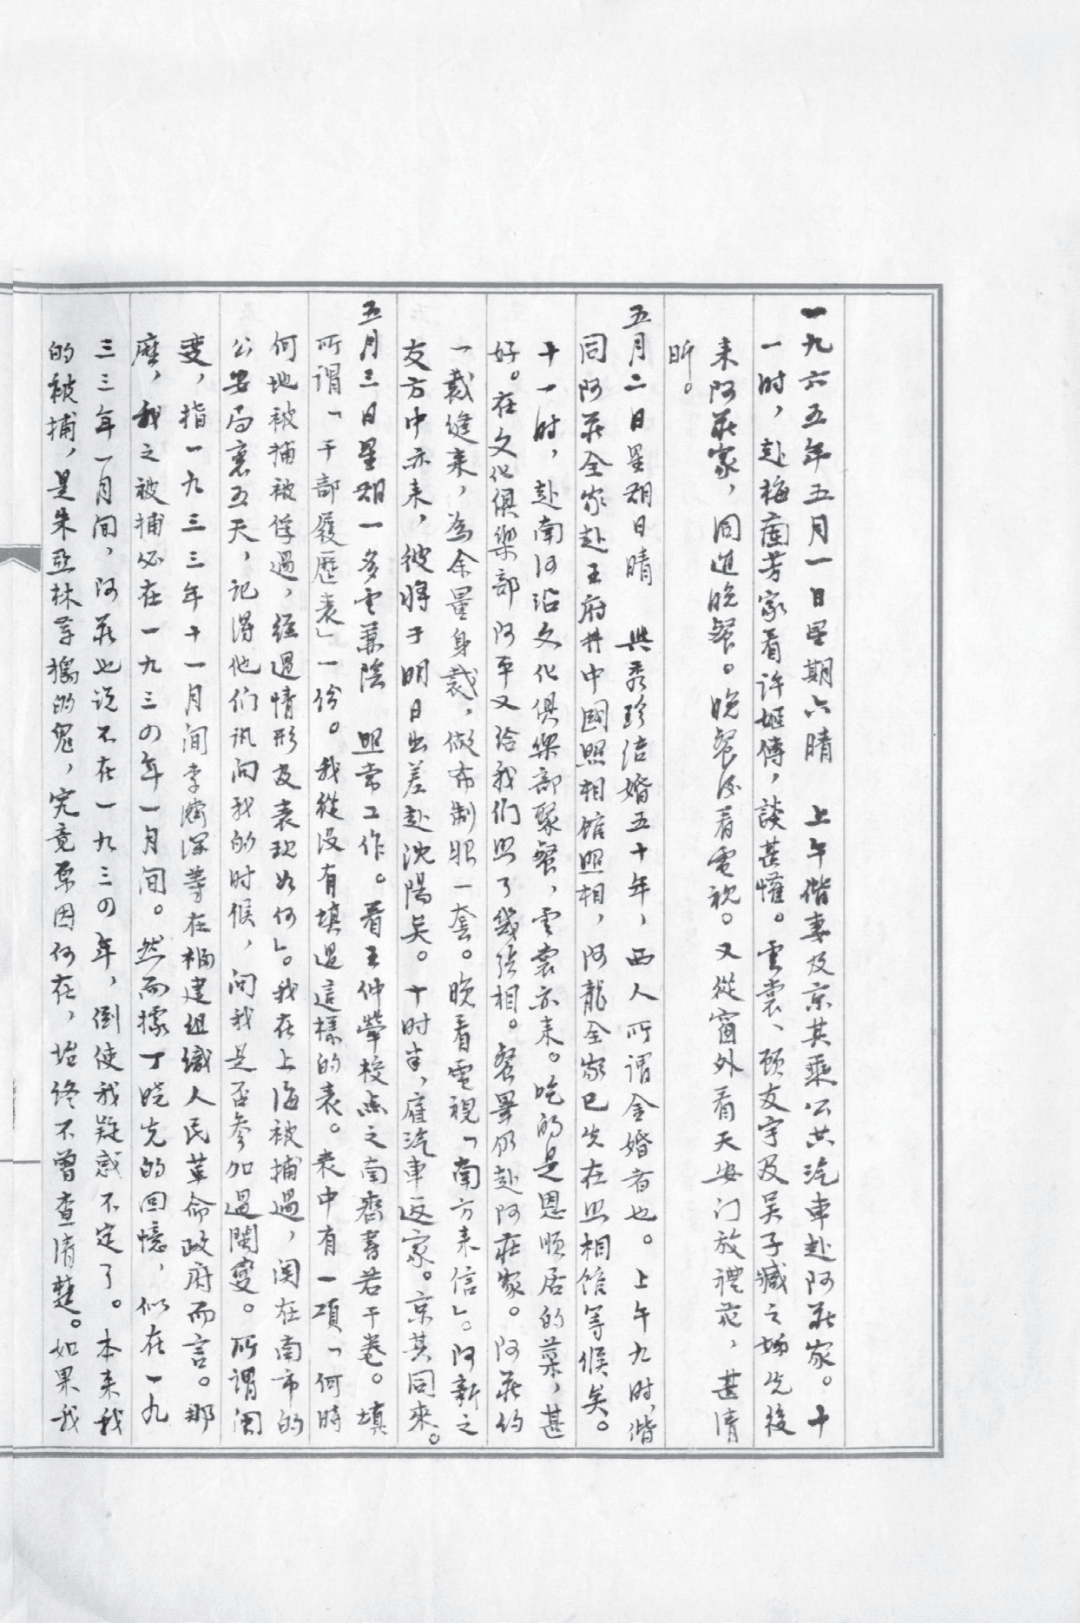 一九六五年五月一日星期六晴　上午偕妻及京其乘公共汽車赴阿莊家。十
一時，赴梅蘭芳家看許姬傳，談甚懽。雲裳、顾友宇及吴子臧之娣先後
来阿莊家，同進晚餐。晚餐後看電視。又從窗外看天安门放禮花，甚清
昕。
五月二日星期日晴　與秀珍结婚五十年，西人所谓金婚者也。上午九时，偕
同阿莊全家赴王府井中國照相馆照相，阿龍全家已先在照相馆等候矣。
十一时，赴南河沿文化俱樂部聚餐，雲裳亦来。吃的是恩顺居的菜，甚
好。在文化俱樂部阿平又给我们照了幾张相。餐畢仍赴阿莊家。阿莊约
一裁缝来，為余量身裁，做布制服一套。晚看電視「南方来信」。阿新之
友方中亦来，彼將于明日出差赴沈陽矣。十时半，雇汽車返家。京其同來。
五月三日星期一多雲兼陰　照常工作。看王仲犖校点之南齊書若干卷。填
所谓「干部履歷表」一份。我從没有填過這樣的表。表中有一項「何時
何地被捕被俘過，經過情形及表现如何」。我在上海被捕過，関在南市的
公安局裏五天，记得他们讯问我的时候，问我是否参加過閩變。所谓閩
变，指一九三三年十一月间李濟深等在福建组織人民革命政府而言。那
麽，我之被捕必在一九三四年一月间。然而據丁晓先的回憶，似在一九
三三年一月间，阿莊也说不在一九三四年，倒使我疑惑不定了。本来我
的被捕，是朱亞林等搗的鬼，究竟原因何在，始终不曾查清楚。如果我